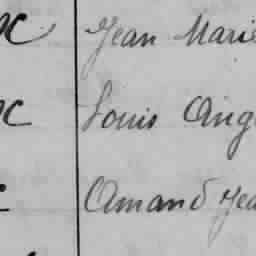 Jean Marie
Louis Ang
Amand Jea